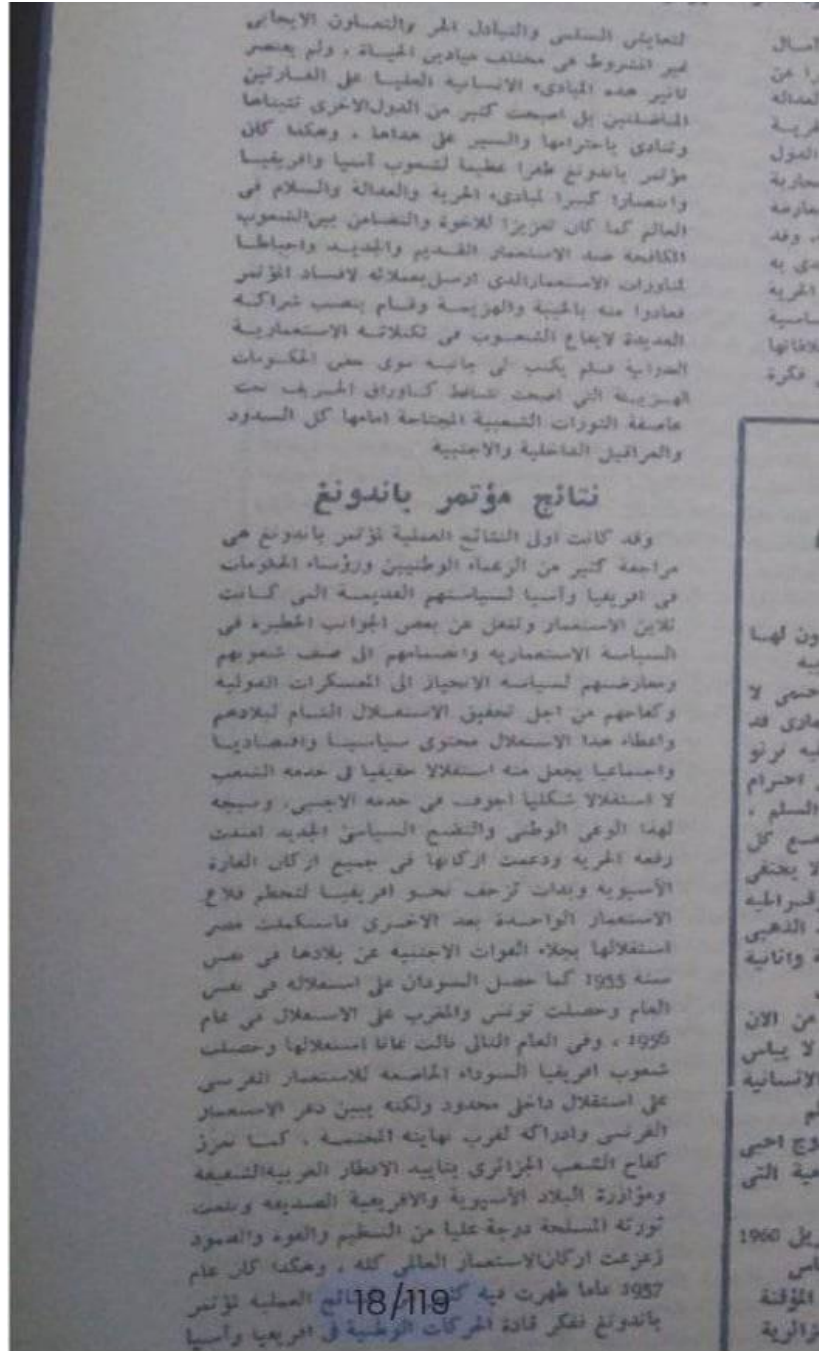 لتعايش السلمى والتبادل الحر والتعاون الايجابى
غير المشروط فى مختلف ميادين الحياة ، ولم يقتصر
تاثير هذه المبادىء الانسانية العليا على القارتين
المناضلتين بل اصبحت كثير من الدول الاخرى تتبناها
وتنادى باحترامها والسير على هداها ، وهكذا كان
مؤتمر باندونغ ظفرا عظيما لشعوب آسيا وافريقيا
وانتصارا كبيرا لمبادىء الحرية والعدالة والسلام فى
العالم كما كان تعزيزا للاخوة والتضامن بين الشعوب
المكافحة ضد الاستعمار القديم والجديد واحباطا
لمناورات الاستعمار الذى ارسل بعملائه لافساد المؤتمر
فعادوا منه بالخيبة والهزيمة وقام بنصب شراكه
العديدة لايقاع الشعوب فى تكتلاته الاستعمارية
العدوانية فلم يكسب الى جانبه سوى بعض الحكومات
الهزيلة التى اصبحت تتساقط كاوراق الخريف تحت
عاصفة الثورات الشعبية المجتاحة امامها كل السدود
والعراقيل الداخلية والاجنبية
نتائج مؤتمر باندونغ
وقد كانت اولى النتائج العملية لمؤتمر باندونغ هى
مراجعة كثير من الزعماء الوطنيين ورؤساء الحكومات
فى افريقيا وآسيا لسياستهم القديمة التى كانت
تلاين الاستعمار وتغفل عن بعض الجوانب الخطيرة فى
السياسة الاستعمارية وانضمامهم الى صف شعوبهم
ومعارضتهم لسياسة الانحياز الى المعسكرات الدولية
وكفاحهم من اجل تحقيق الاستقلال التام لبلادهم
واعطاء هذا الاستقلال محتوى سياسيا واقتصاديا
واجتماعيا يجعل منه استقلالا حقيقيا فى خدمة الشعب
لا استقلالا شكليا اجوف فى خدمة الاجنبى، ونتيجة
لهذا الوعى الوطنى والنضج السياسى الجديد امتدت
رقعة الحرية ودعمت اركانها فى جميع اركان القارة
الآسيوية وبدات تزحف نحو افريقيا لتحطم قلاع
الاستعمار الواحدة بعد الاخرى فاستكملت مصر
استقلالها بجلاء القوات الاجنبية عن بلادها فى نفس
سنة 1955 كما حصل السودان على استقلاله فى نفس
العام وحصلت تونس والمغرب على الاستقلال فى عام
1956 ، وفى العام التالى نالت غانا استقلالها وحصلت
شعوب افريقيا السوداء الخاضعة للاستعمار الفرنسى
على استقلال داخلى محدود ولكنه يبين ذعر الاستعمار
الفرنسى وادراكه لقرب نهايته المحتمة ، كما تعزز
كفاح الشعب الجزائرى بتاييد الاقطار العربية الشقيقة
ومؤازرة البلاد الآسيوية والافريقية الصديقة وبلغت
ثورته المسلحة درجة عليا من التنظيم والقوة والصمود
زعزعت اركان الاستعمار العالمى كله ، وهكذا كان عام
1957 عاما ظهرت فيه العملية لمؤتمر
باندونغ ففكر قادة الحركات الوطنية فى افريقيا وآسيا
18/119
امال
را عن
العدالة
الدول
وقد
دى به
الحرية
فكرة
ون لها
حتمى لا
احترام
السلم ،
لا يختفى
الذهبى
وانانية
من الان
لا يياس
الانسانية
التى
1960
المؤقتة